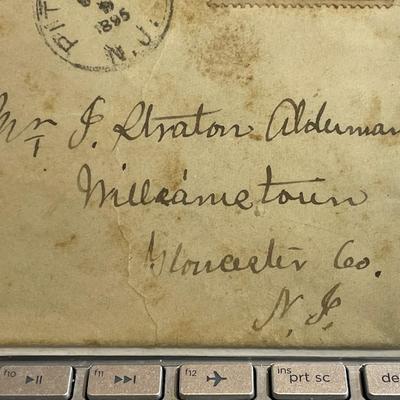 PIT
1895
N.J.
Mr I. Straton Alderman
Williamstown
Gloucester Co.
N.J.
f10 f11 f12 ins prt sc de